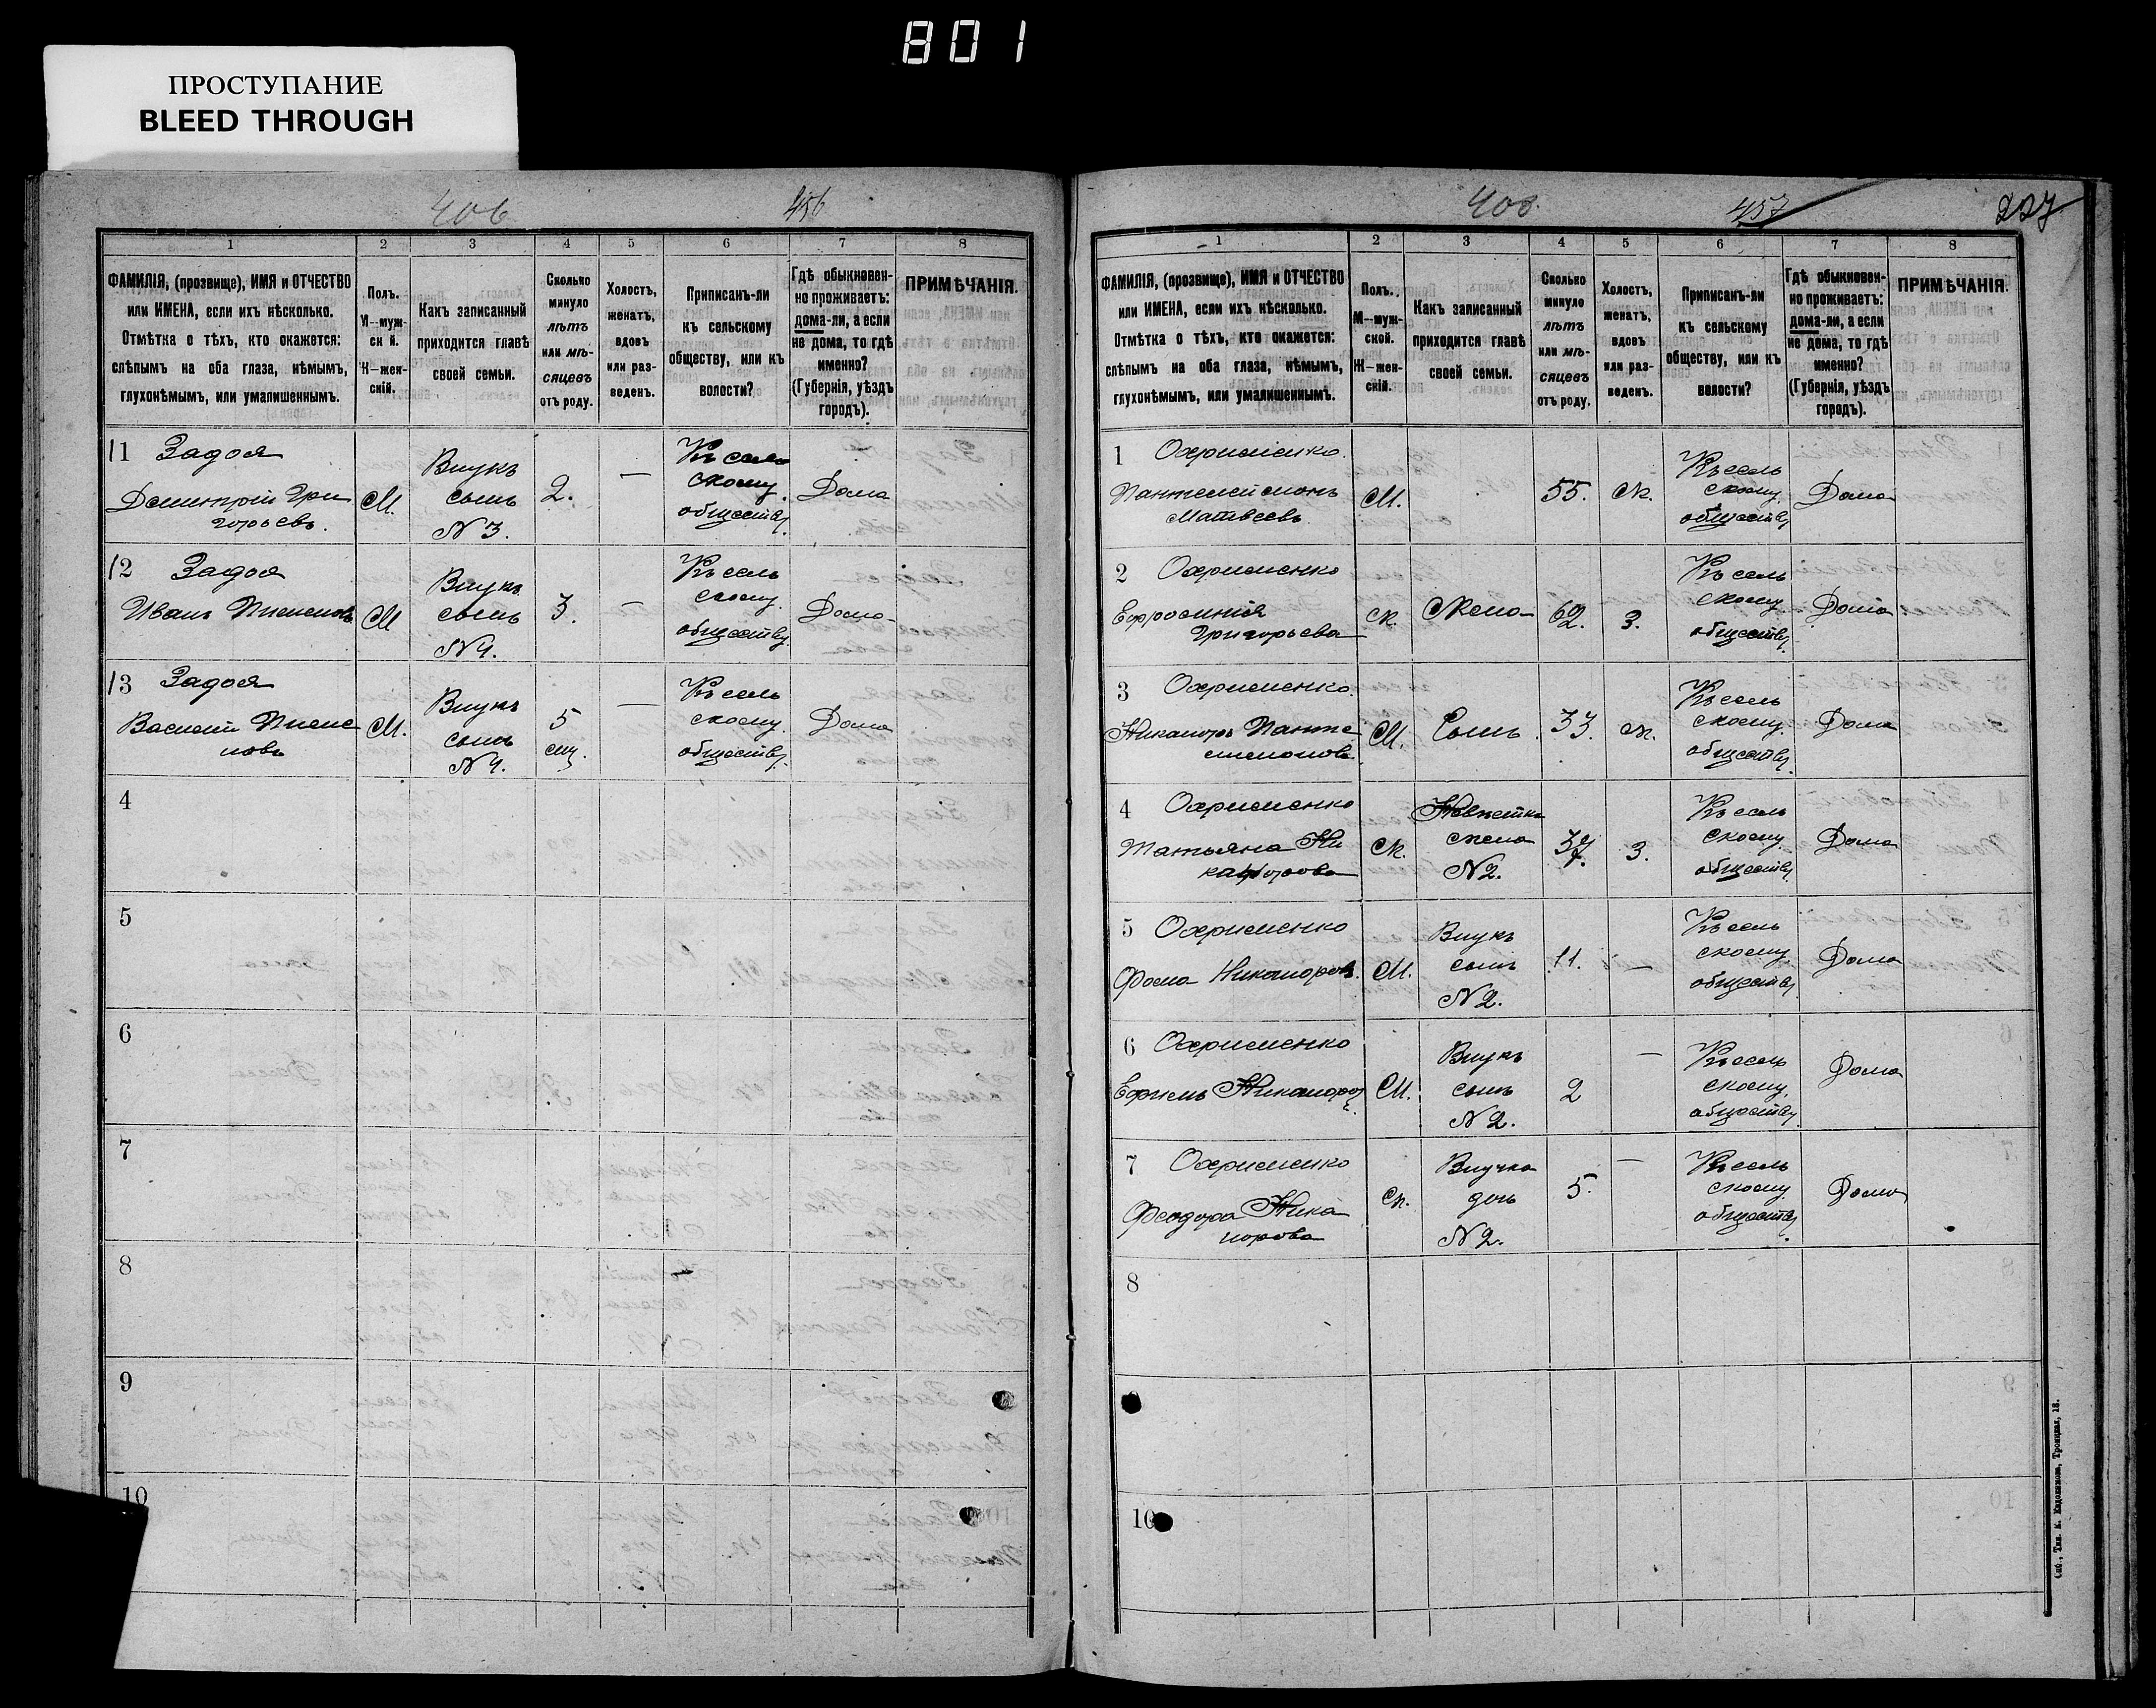 801
ПРОСТУПАНИЕ
BLEED THROUGH
406
456
1 2 3 4 5 6 7 8
ФАМИЛІЯ, (прозвище), ИМЯ и ОТЧЕСТВО
или ИМЕНА, если ихъ нѣсколько.
Отмѣтка о тѣхъ, кто окажется:
слѣпымъ на оба глаза, нѣмымъ,
глухонѣмымъ, или умалишеннымъ.
Полъ.
М—муж-
ск й.
Ж—жен-
скій.
Какъ записанный
приходится главѣ
своей семьи.
Сколько
минуло
лѣтъ
или мѣ-
сяцевъ
отъ роду.
Холостъ,
женатъ,
вдовъ
или раз-
веденъ.
Приписанъ-ли
къ сельскому
обществу, или къ
волости?
Гдѣ обыкновен-
но проживаетъ:
дома-ли, а если
не дома, то гдѣ
именно?
(Губернія, уѣздъ
городъ).
ПРИМѢЧАНІЯ.
11 Задоя
Димитрій Гри
горьевъ.
М.
Внукъ
сынъ
N 3.
2.
—
Къ сель
скому
обществу.
Дома
12 Задоя
Иванъ Пименовъ
М
Внукъ
сынъ
N 4.
3.
—
Къ сель
скому
обществу.
Дома
13 Задоя
Василій Пиме
новъ
М.
Внукъ
сынъ
N 4.
5
мц.
—
Къ сель
скому
обществу.
Дома
4
5
6
7
8
9
10
457
227
1 2 3 4 5 6 7 8
ФАМИЛІЯ, (прозвище), ИМЯ и ОТЧЕСТВО
или ИМЕНА, если ихъ нѣсколько.
Отмѣтка о тѣхъ, кто окажется:
слѣпымъ на оба глаза, нѣмымъ,
глухонѣмымъ, или умалишеннымъ.
Полъ.
М—муж-
ской.
Ж—жен-
скій.
Какъ записанный
приходится главѣ
своей семьи.
Сколько
минуло
лѣтъ
или мѣ-
сяцевъ
отъ роду.
Холостъ,
женатъ,
вдовъ
или раз-
веденъ.
Приписанъ-ли
къ сельскому
обществу, или къ
волости?
Гдѣ обыкновен-
но проживаетъ:
дома-ли, а если
не дома, то гдѣ
именно?
(Губернія, уѣздъ
городъ).
ПРИМѢЧАНІЯ.
1 Охрименко
Пантелеймонъ
Матвеевъ
М.
55.
ж.
Къ сель
скому
обществу
Дома
2 Охрименко
Ефросинія
Григорьева
ж.
Жена
62.
З.
Къ сель
скому
обществу.
Дома
3 Охрименко
Никаноръ Панте
лимоновъ
М.
Сынъ
33.
ж.
Къ сель
скому
обществу.
Дома
4 Охрименко
Татьяна Ни
ж.
Невѣстка
жена
N 2.
37.
З.
Къ сель
скому
обществу.
Дома
5 Охрименко
Фома Никаноровъ.
М.
Внукъ
сынъ
N 2.
11.
—
Къ сель
скому
обществу.
Дома
6 Охрименко
Ефимъ Никаноровъ
М.
Внукъ
сынъ
N 2.
2
—
Къ сель
скому
обществу.
Дома
7 Охрименко
Феодора Ника
норова
ж.
Внучка
дочь
N 2.
5.
—
Къ сель
скому
обществу.
Дома
8
10
Спб., Тип. К. Евдокимова, Троицкая, 18.